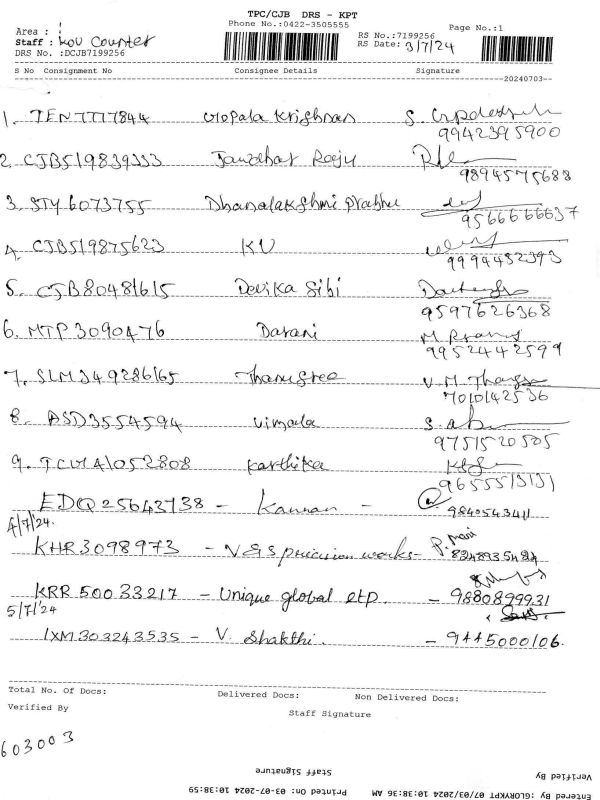 TPC/CJB DRS - KPT
Phone No.:0422-3505555
Page No.:1
Area :
Staff : KOV Counter
RS No.:7199256
DRS No. :DCJB7199256
RS Date: 3/7/24
S No Consignment No Consignee Details Signature
20240703
1. TEN7777844 Gopala Krishnan
9942395900
2. CJB519839333 Raju
9894575688
3. STY6073755 Dhanalakshmi Prabhu
9566666637
4. CJB519875623 KU
9994482393
5. CJB80481615 Devika Sibi
9597626368
6. MTP3090476 Darani
9952442599
7. SLM349286165 Thanusree V. M.
7010142536
8. ASD3554594 Vimala
9751520505
9. TCMA1052808 Karthika
9655513131
EDQ25643738 - Kannan -
9840543411
4/7/24.
KHR3098973 - V&S precision works - P. Mani
KRR50033217 - Unique global etp. - 9880899931
5/7/24
IXM303243535 - V. Shakthi. - 9445000106.
Total No. Of Docs: Delivered Docs: Non Delivered Docs:
Verified By
Staff Signature
603003
Staff Signature
Verified By
Entered By :GLORYKPT 07/03/2024 10:38:36 AM Printed On: 03-07-2024 10:38:59